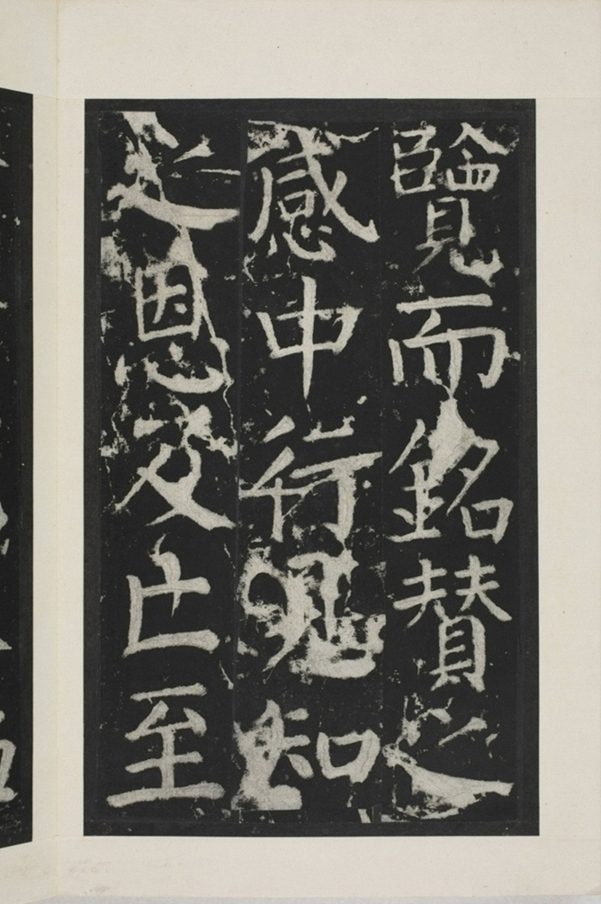 覽而銘贊之
感中行見知
之恩及亡至